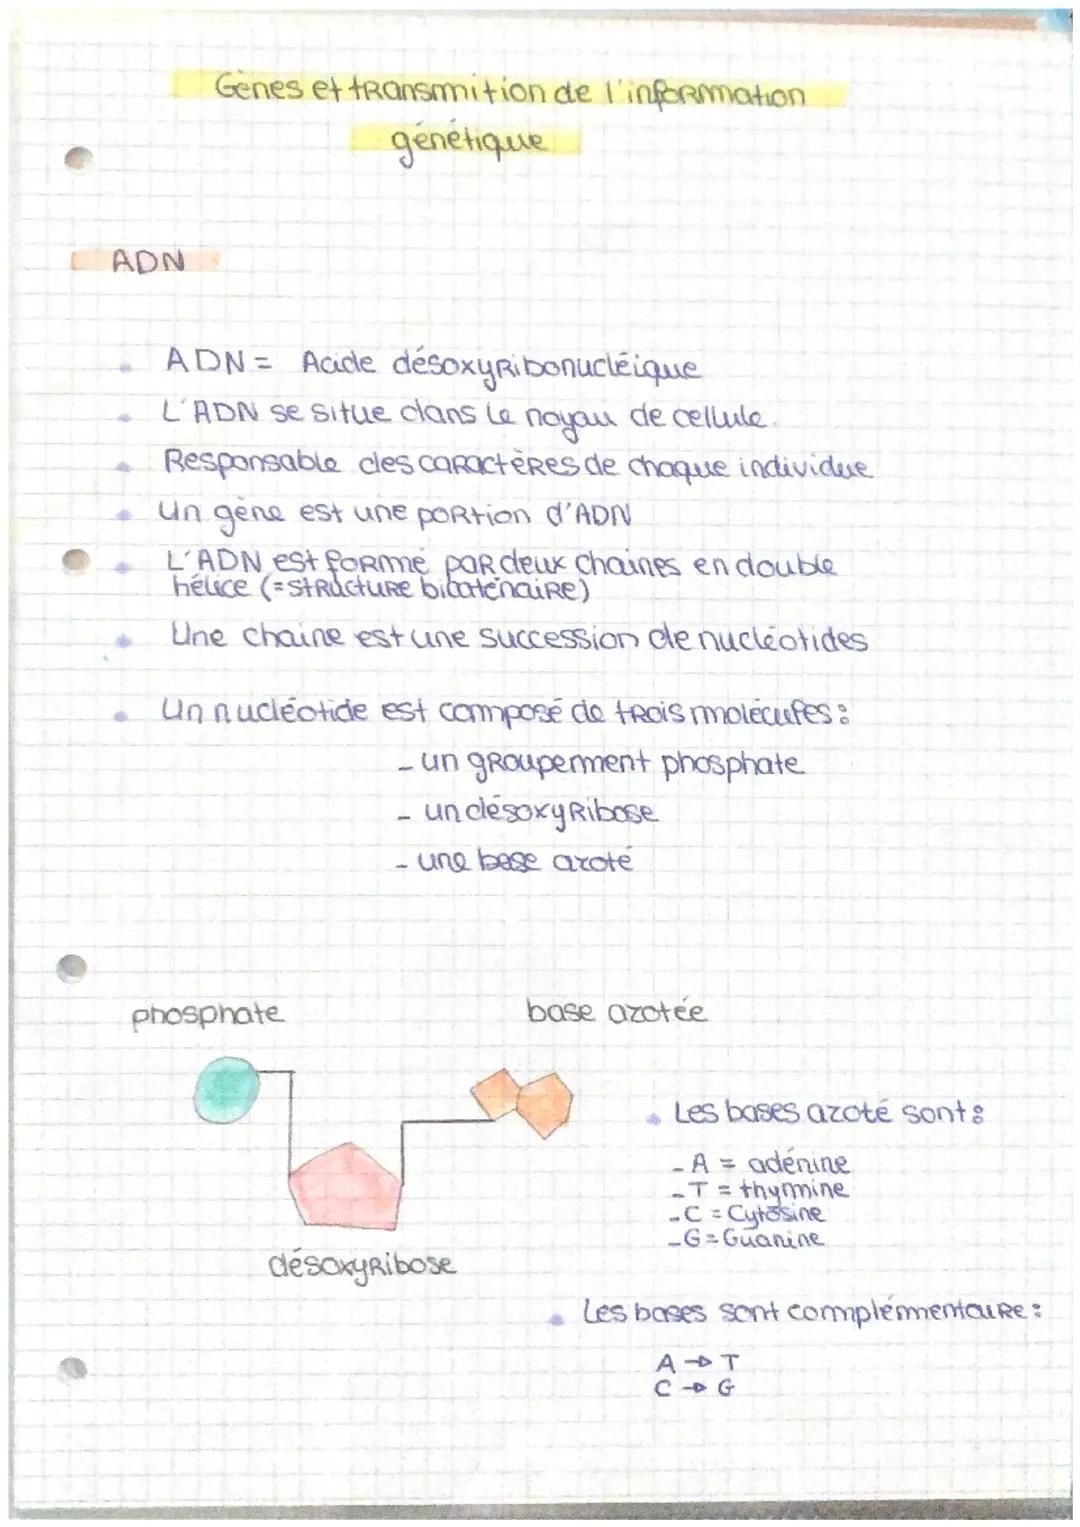 Gènes et transmition de l'information
génétique
ADN
ADN = Acide désoxyribonucléique
L'ADN se situe dans le noyau de cellule.
Responsable des caractères de chaque individue
Un gène est une portion d'ADN
L'ADN est formé par deux chaines en double
hélice (= structure bicaténaire)
Une chaine est une succession de nucléotides
Un nucléotide est composé de trois molécules :
- un groupement phosphate
- un désoxyribose
- une base azoté
phosphate
base azotée
Les bases azoté sont :
- A = adénine
- T = thymine
- C = Cytosine
- G = Guanine
désoxyribose
Les bases sont complémentaire :
A → T
C → G